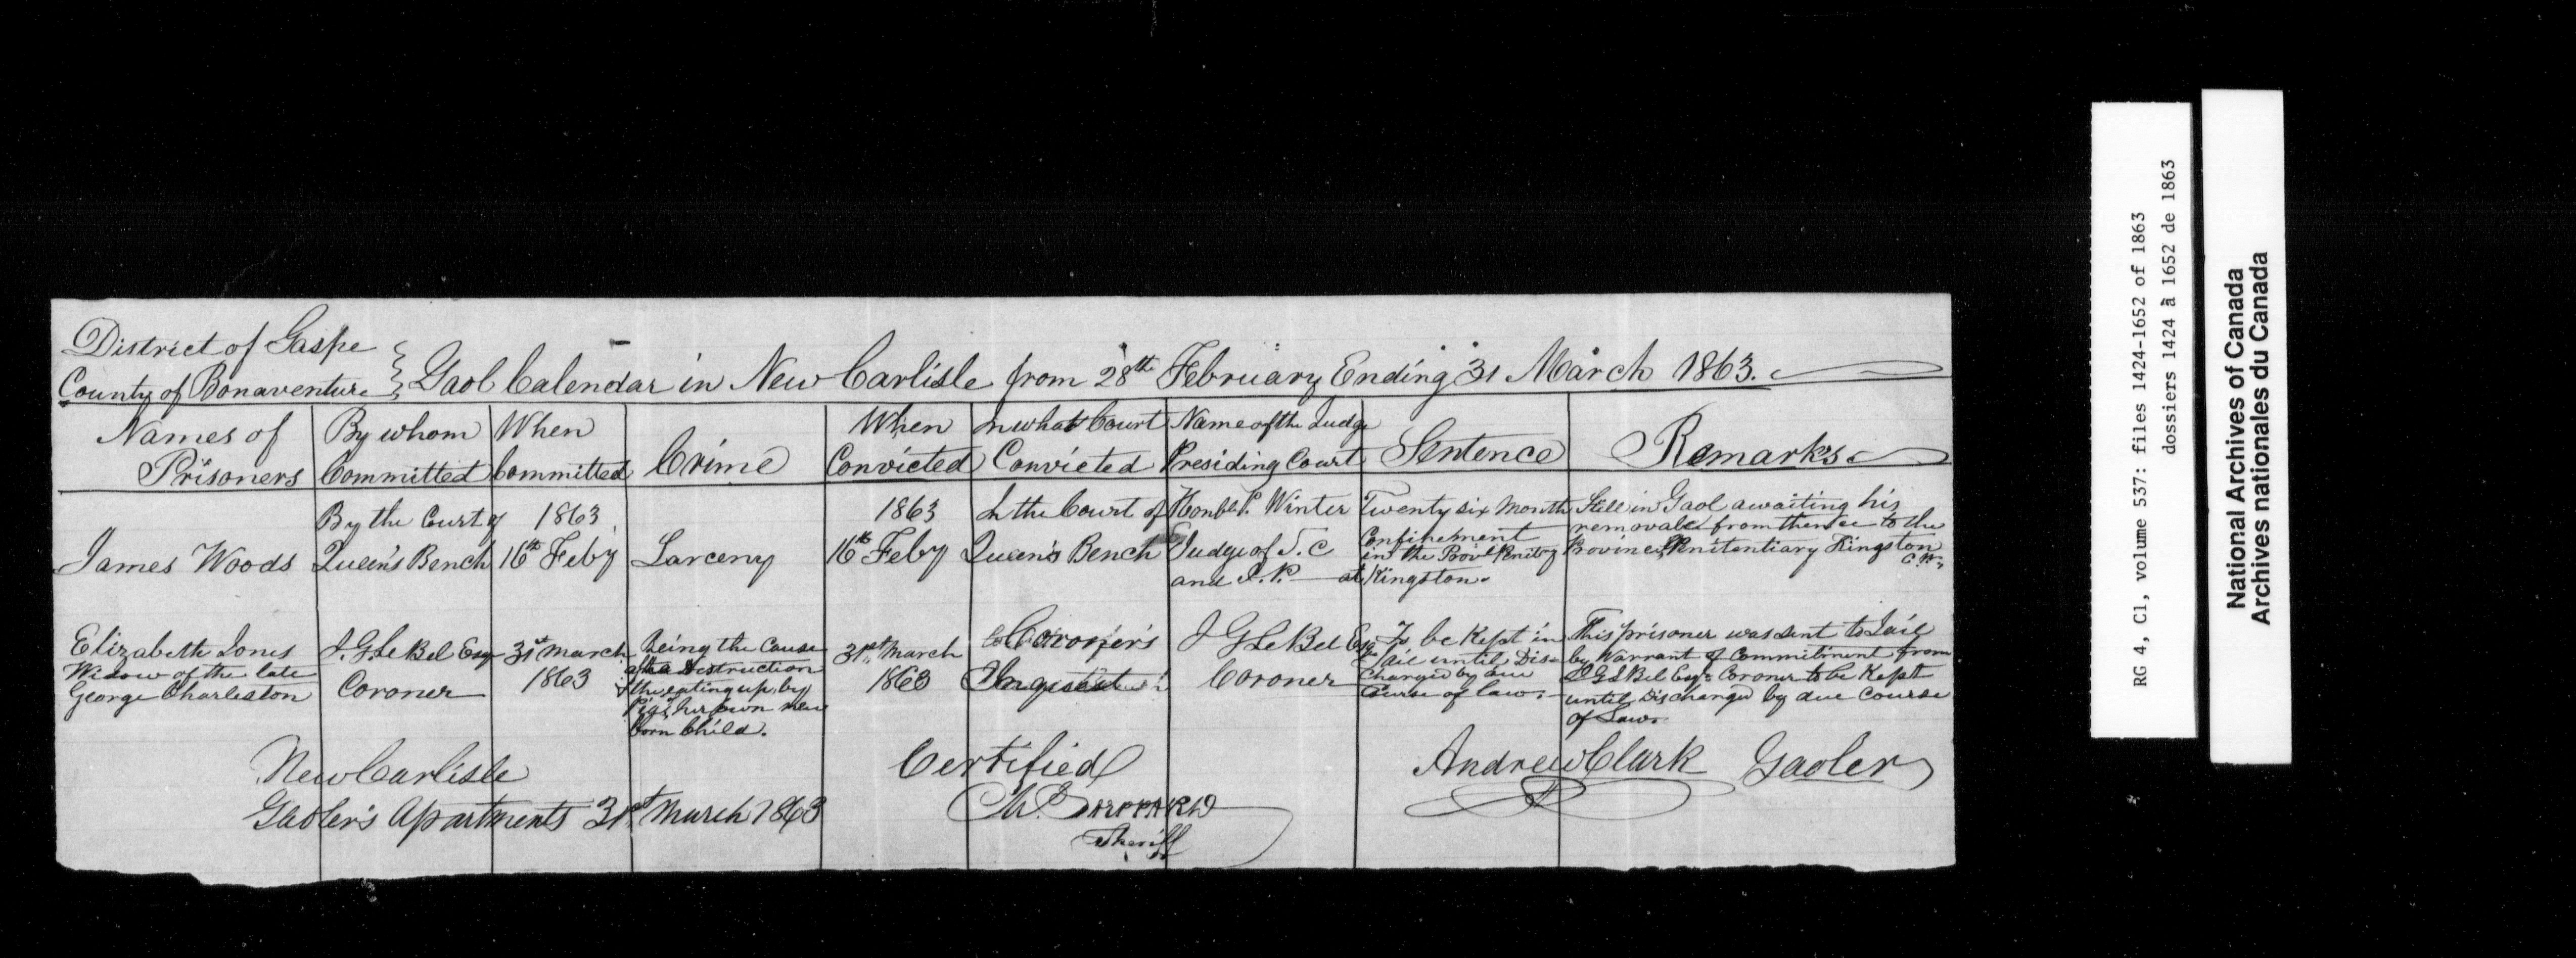 District of Gaspe
County of Bonaventure } Gaol Calendar in New Carlisle from 28th February Ending 31 March 1863.
Names of Prisoners
By whom Committed
When Committed
Crime
When Convicted
In what Court Convicted
Name of the Judge Presiding Court
Sentence
Remarks
James Woods
By the Court of
Queen's Bench
1863
16th Feby
Larceny
1863
16th Feby
In the Court of
Queen's Bench
Honble P. Winter
Judge of S. C
and
Twenty six Month
Confinement
in the Provl Penitry
at Kingston.
Still in Gaol awaiting his
removal from thence to the
Penitentiary Kingston
C.W.
Elizabeth Jones
Widow of the late
George Charleston
J. G. Le Bel Esqr
Coroner
31st March
1863
Being the Cause
of the destruction
& the eating up by
Pigs, her own new
born Child.
31st March
1863
Coroner's
Inquest
J G Le Bel Esqr
Coroner
To be Kept in
Jail until Dis-
charged by due
Course of law.
This prisoner was sent to Jail
by Warrant of Commitment from
J G Le Bel Esqr Coroner to be Kept
until Discharged by due Course
of Law.
New Carlisle
Gaoler's Apartments 31st March 1863
Certified
Sheriff
Andrew Clark Gaoler
RG 4, C1, volume 537: files 1424-1652 of 1863
dossiers 1424 à 1652 de 1863
National Archives of Canada
Archives nationales du Canada